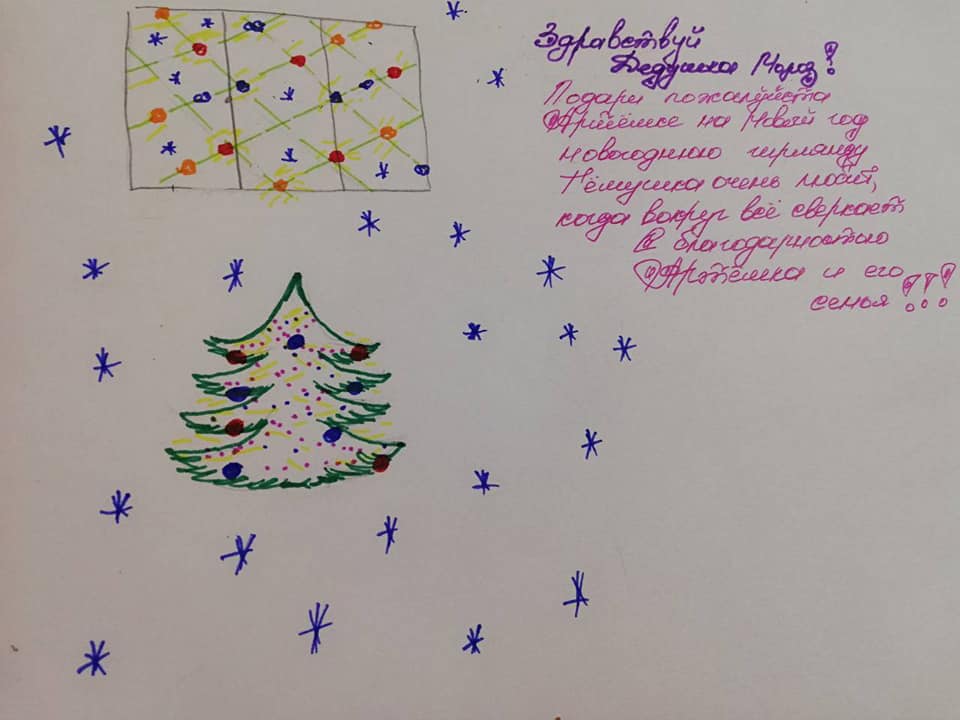 Здравствуй
Дедушка Мороз!
Подари пожалуйста
Артёмке на Новый год
новогоднюю гирлянду
Тёмушка очень любит,
когда вокруг всё сверкает
С благодарностью
Артёмка и его
семья!!!